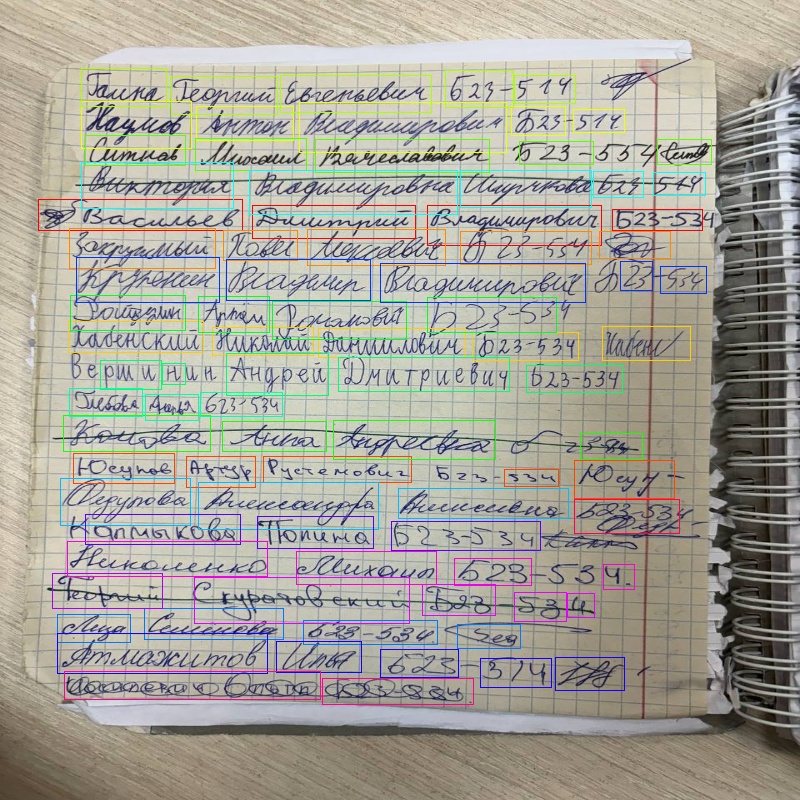 Галка Георгий Евгеньевич Б23-514
Наумов Антон Владимирович Б23-514
Ситнов Михаил Вячеславович Б23-554
Виктория Владимировна Б23-514
Васильев Дмитрий Владимирович Б23-534
Закружный Павел Алексеевич Б23-534
Владимир Владимирович Б23-534
Артём Романович Б23-534
Хабенский Николай Даниилович Б23-534 Хабенс
Вершинин Андрей Дмитриевич Б23-534
Глебова Дарья Б23-534
Котова Анна Андреевна
Юсупов Артур Рустемович Б23-534 Юсуп
Федулова Александра Алексеевна Б23-534
Калмыкова Полина Б23-534
Николенко Михаил Б23-534.
Георгий Скуратовский Б23-534
Лиза Семенова Б23-534
Атмажитов Илья Б23-514
Б23-534